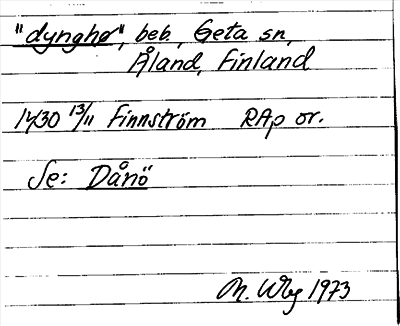 "dynghø", beb, Geta sn,
Åland, Finland
1430 13/11 Finnström RAp or.
Se: Dånö
M. Wbg 1973